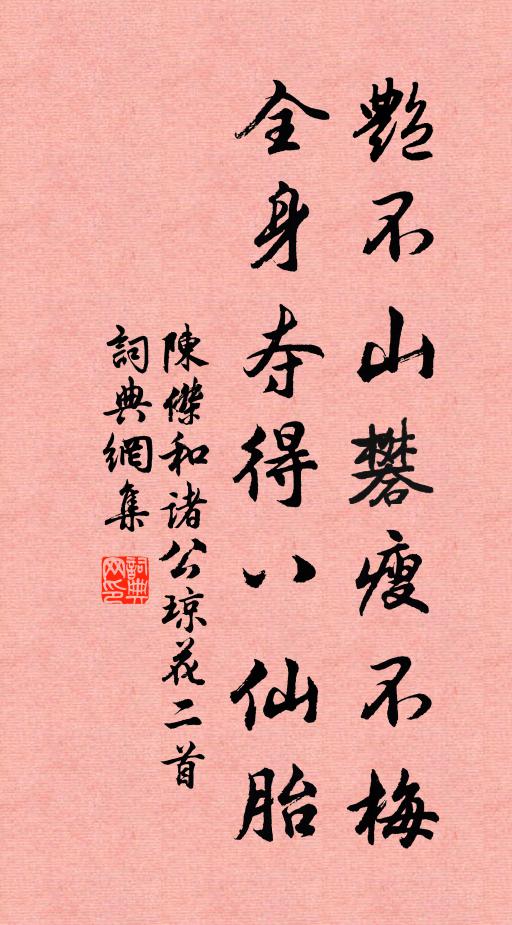 艷不山礬瘦不梅
全身夺得八仙胎
陳傑和诸公琼花二首
詞典網集
詞典
网印